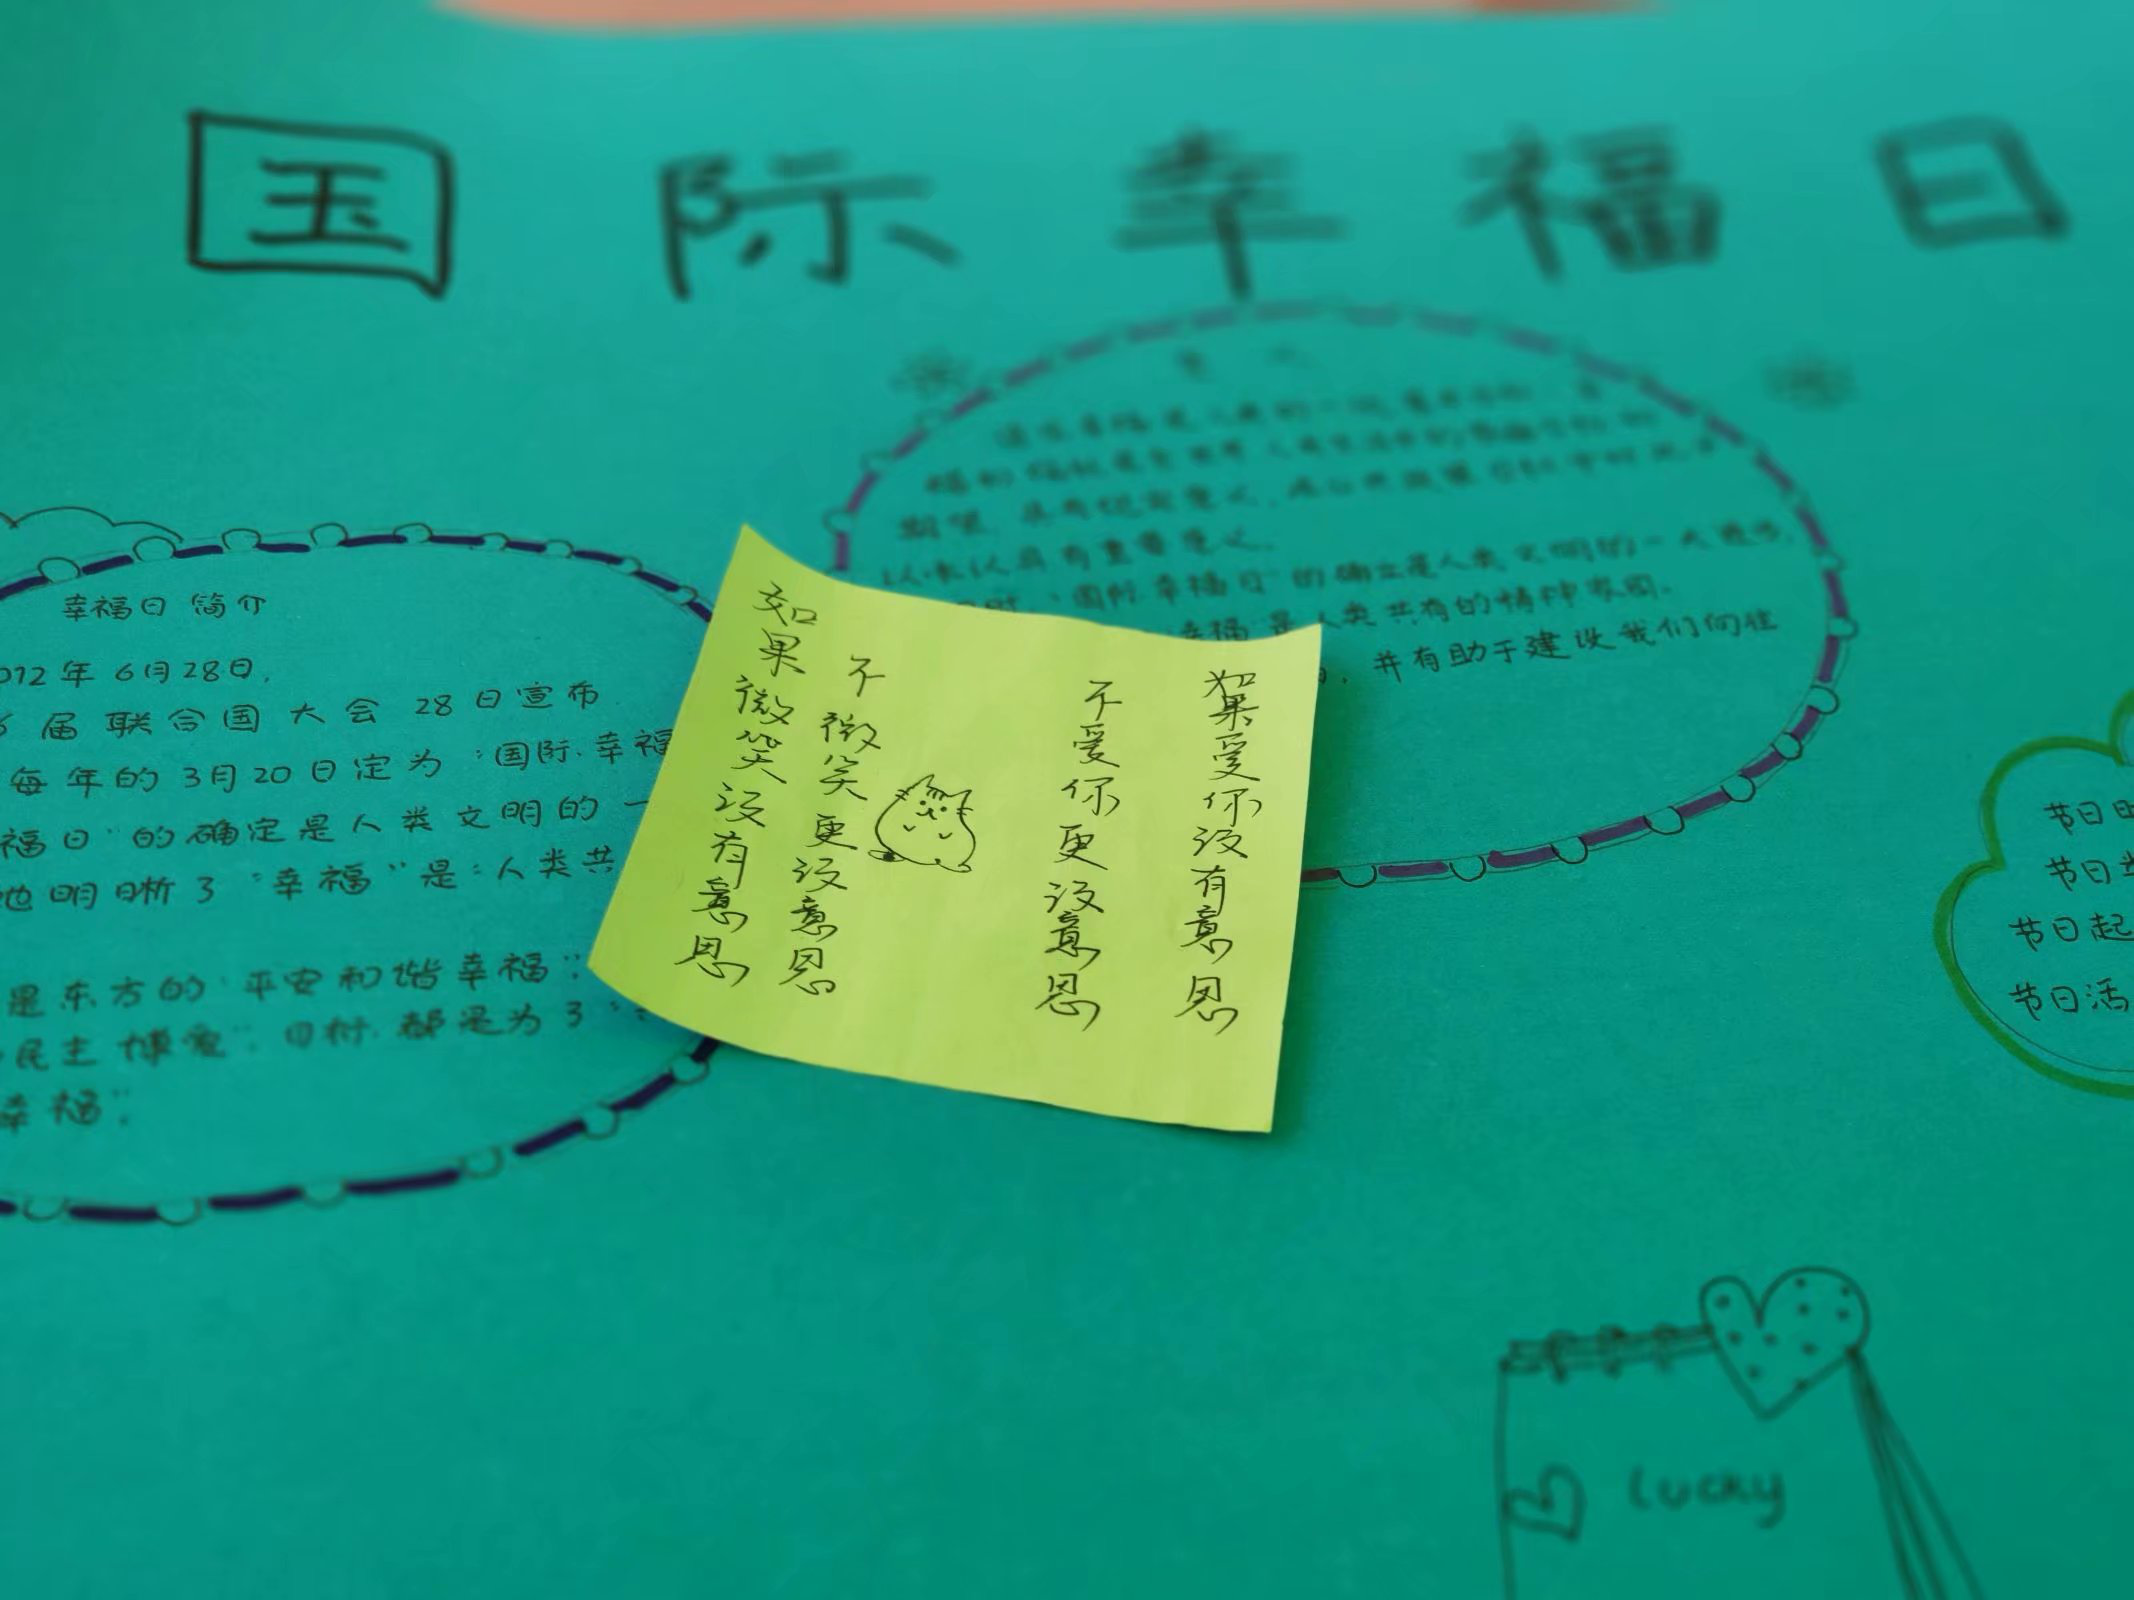 国际幸福日
幸福日简介
012年6月28日,
届联合国大会28日宣布
每年的3月20日定为“国际幸福
福日”的确定是人类文明的一
地明晰了“幸福”是“人类共
是东方的“平安和谐幸福”
民主博爱”目标都是为了
幸福”
期望,具有现实意义,
以来认具有重要意义。
“国际幸福日”的确立是人类文明的一大进步,
幸福”是人类共有的精神家园。
,并有助于建设我们向往
如果爱你没有意思
不爱你更没意思
不微笑更没意思
如果微笑没有意思
节日日
节日
节日起
节日活
lucky